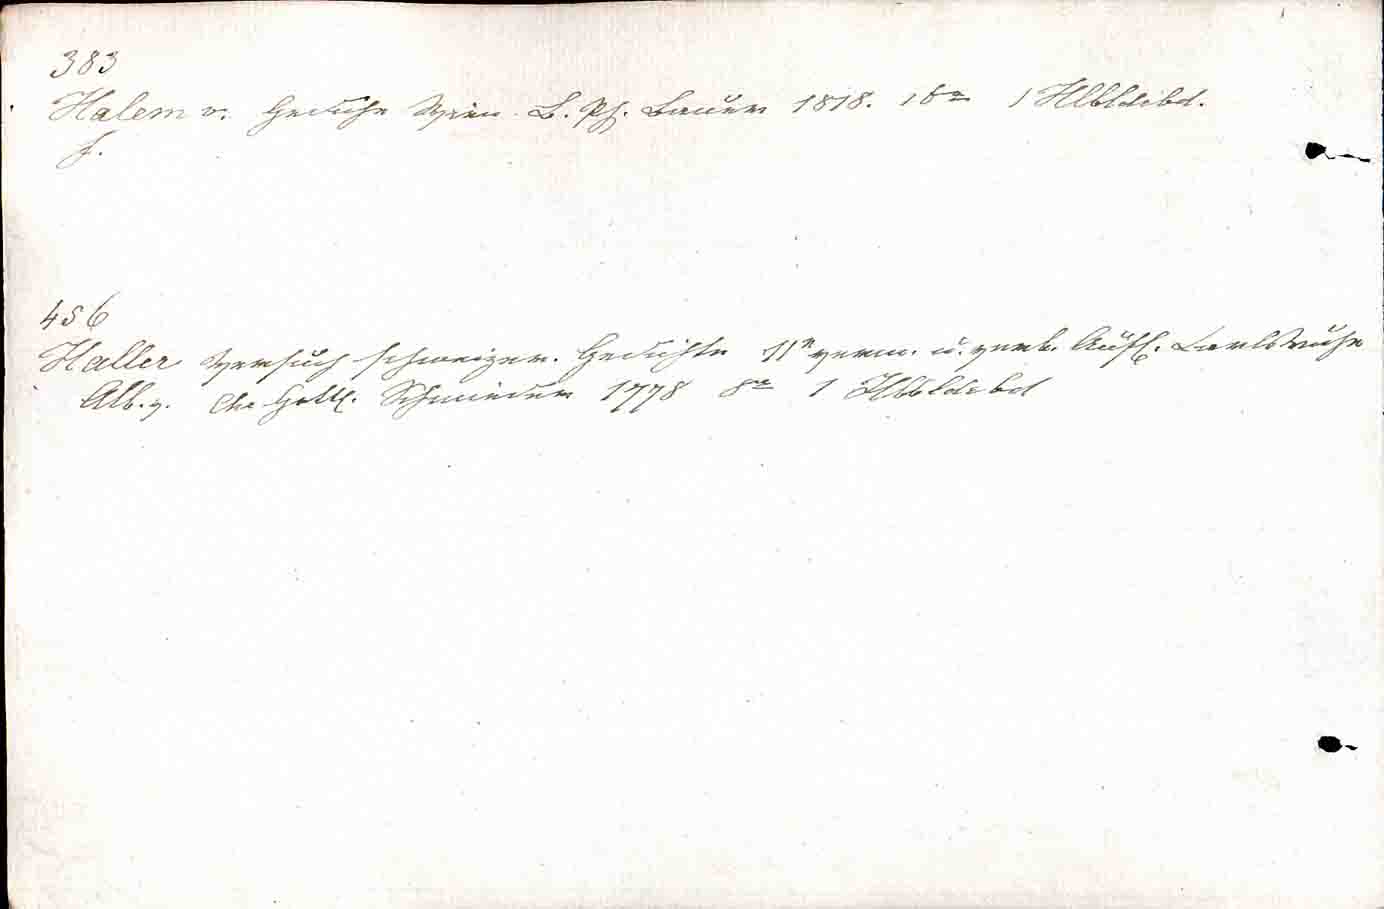 383
Halem v. Gedichte Wien B. Ph. Bauer 1818. 16° 1 Hlbldrbd.
F.
456
Haller Versuch schweizer. Gedichte 11e verm. u. verb. Aufl. Carlsruhe
Alb. v. Chr Gottl. Schmieder 1778 8° 1 Hlbldrbd